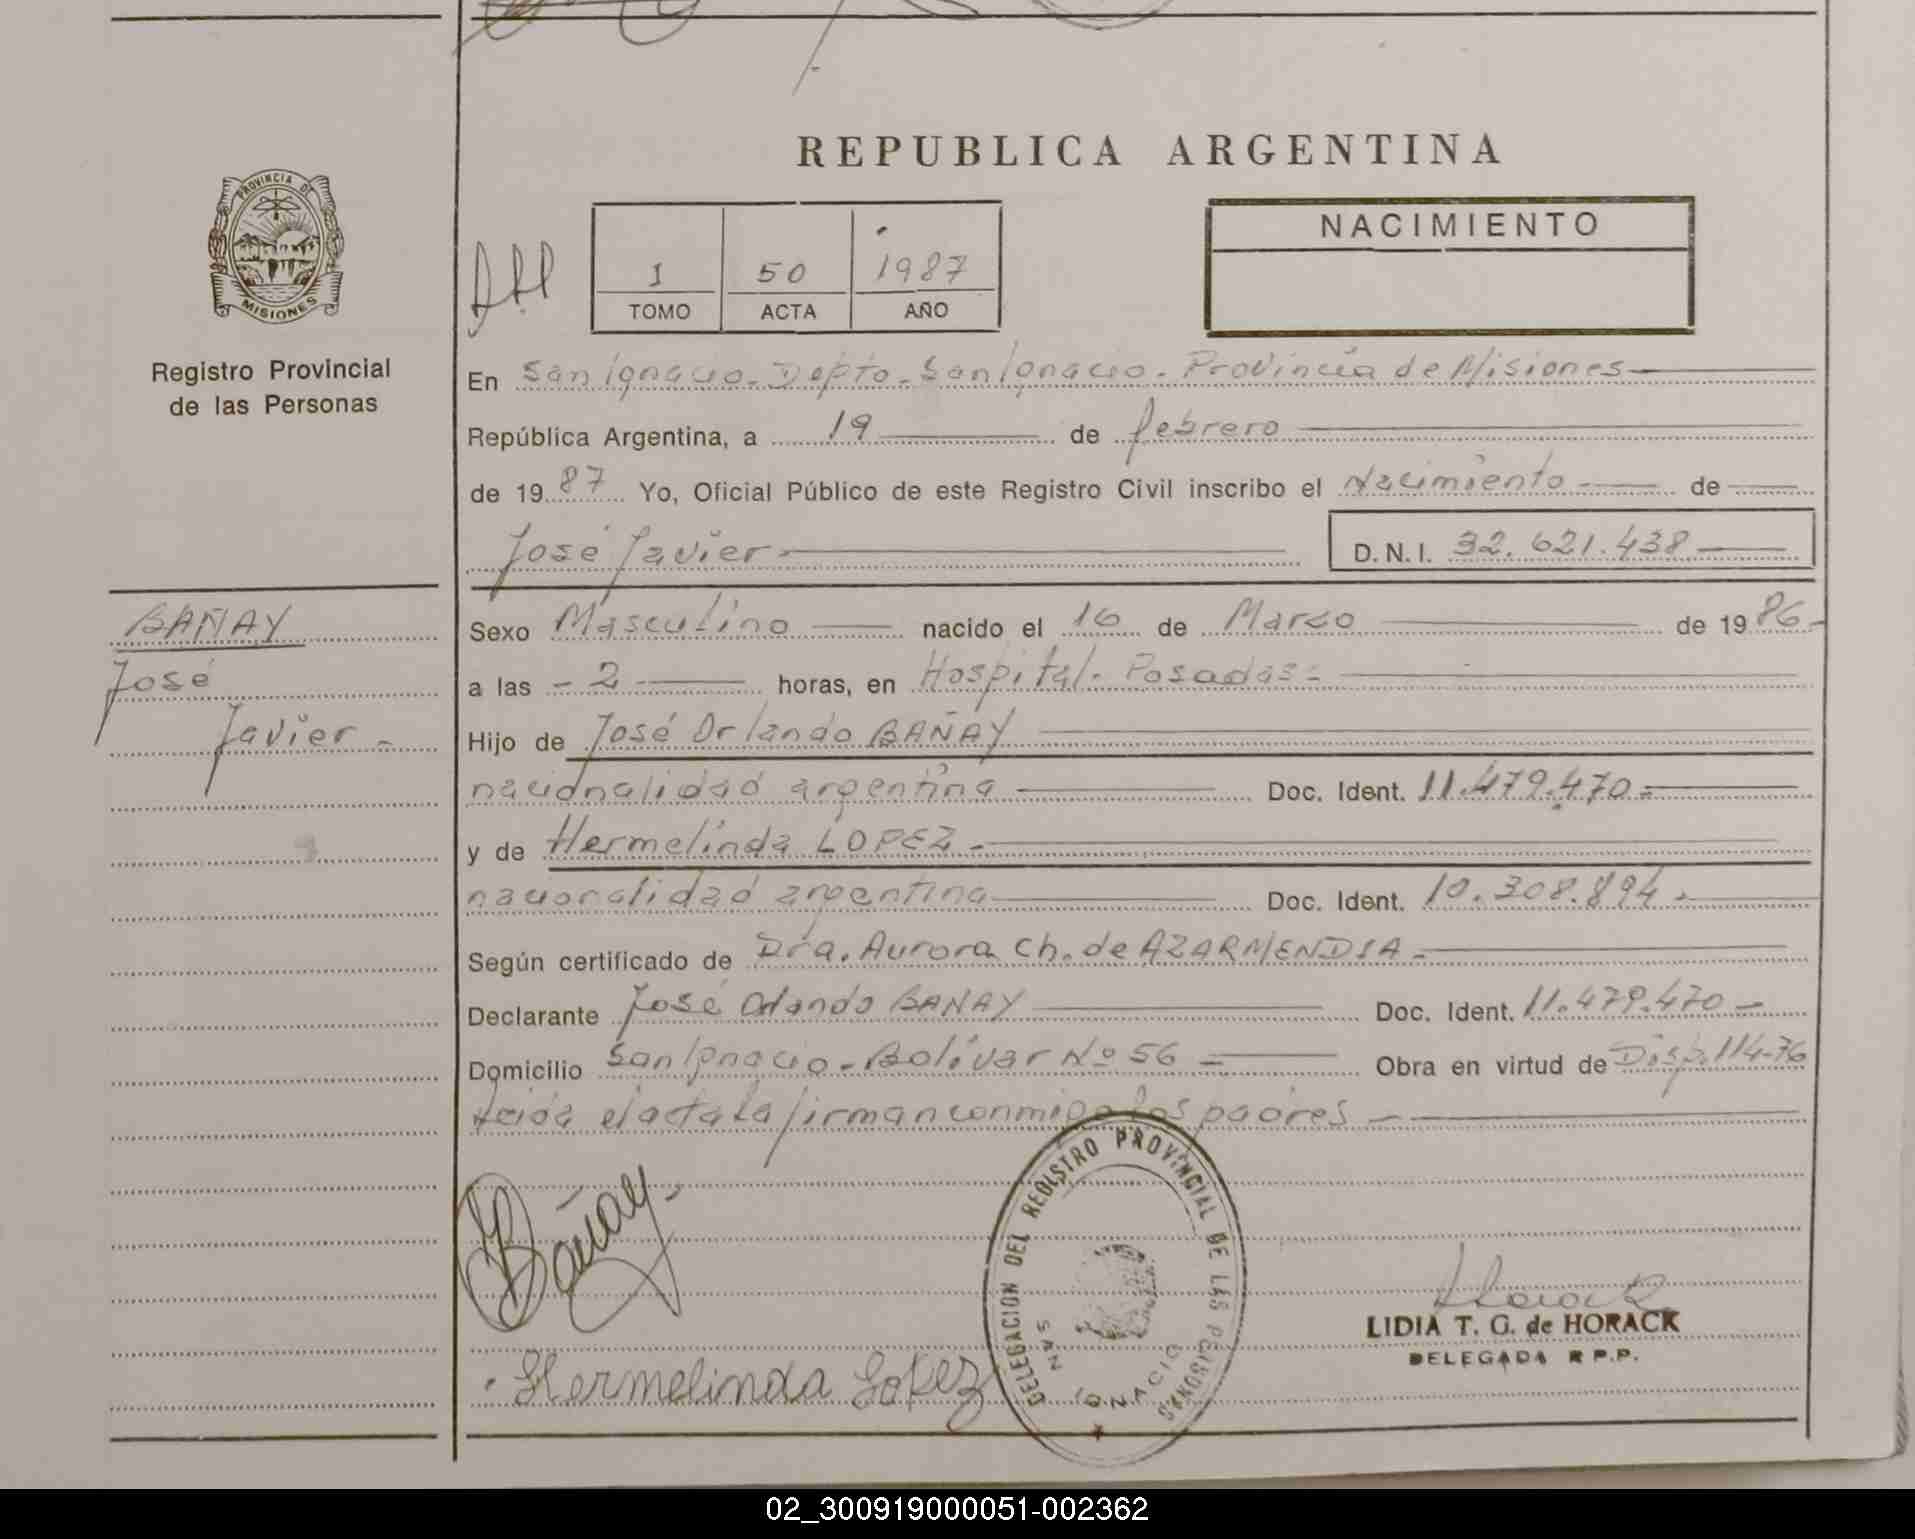 REPUBLICA ARGENTINA
PROVINCIA DE
MISIONES
Registro Provincial
de las Personas
1 50 1987
TOMO ACTA AÑO
NACIMIENTO
En San Ignacio. Depto. San Ignacio. Provincia de Misiones
República Argentina, a 19 de febrero
de 1987 Yo, Oficial Público de este Registro Civil inscribo el Nacimiento de
José Javier D.N.I. 32.621.438
BAÑAY
José
Javier
Sexo Masculino nacido el 16 de Marzo de 1986
a las 2 horas, en Hospital. Posadas
Hijo de José Orlando BAÑAY
nacionalidad argentina Doc. Ident. 11.479.470
y de Hermelinda LOPEZ
nacionalidad argentina Doc. Ident. 10.308.894
Según certificado de Dra. Aurora Ch. de AZARMENDIA
Declarante José Orlando BAÑAY Doc. Ident. 11.479.470
Domicilio San Ignacio - Bolívar Nº 56 Obra en virtud de Disp. 114-76
Leida el acta la firman conmigo los padres
Bañay
DELEGACION DEL REGISTRO PROVINCIAL DE LAS PERSONAS
SAN IGNACIO
Horack
LIDIA T. G. de HORACK
DELEGADA R P.P.
Hermelinda Lopez
02_300919000051-002362